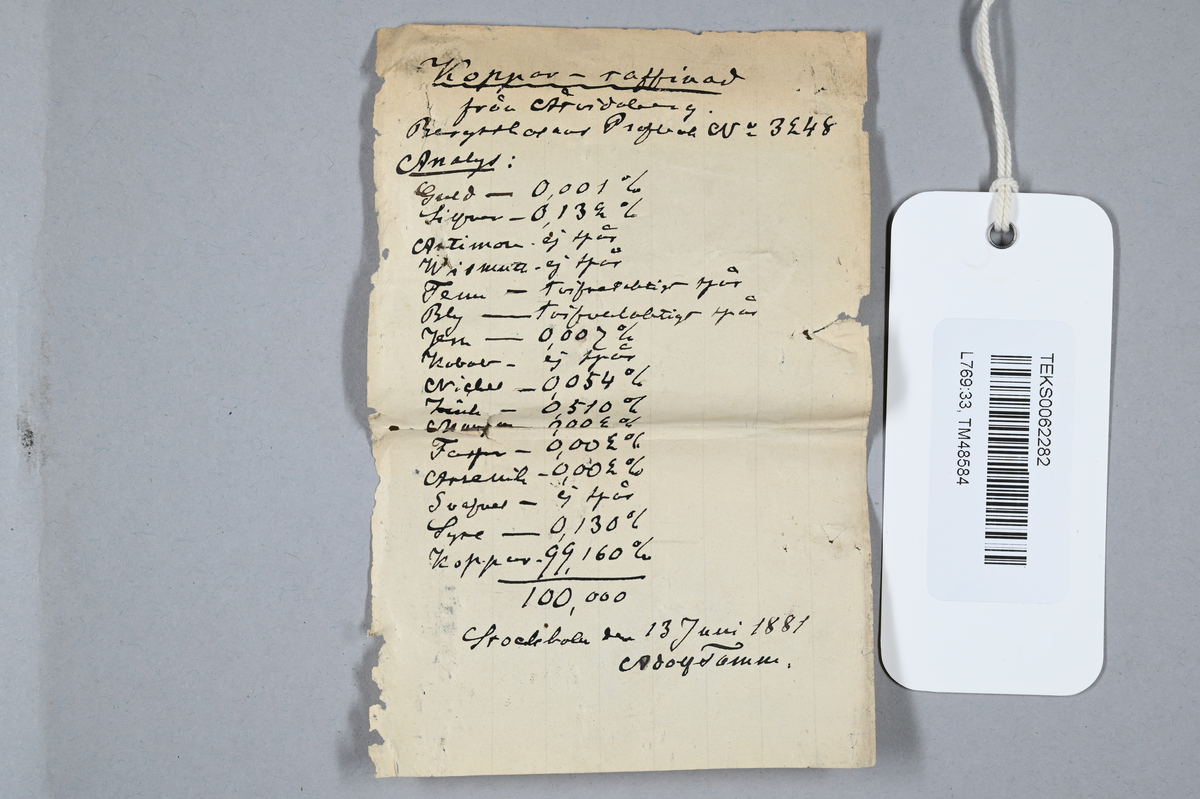 Koppar-raffinad
från Åtvidaberg.
Bergsskolans Profbok No 3248
Analys:
Guld — 0,001 %
Silfver — 0,132 %
Antimon - ej spår
Wismuth - ej spår
Tenn — tvifvelaktigt spår
Bly — tvifvelaktigt spår
Jern — 0,007 %
Kobolt - ej spår
Nickel — 0,054 %
Zink — 0,510 %
Mangan 0,002 %
Fosfor — 0,002 %
Arsenik - 0,002 %
Svafvel — ej spår
Syre — 0,130 %
Koppar - 99,160 %
100,000
Stockholm den 13 Juni 1881
Adolf Tamm.
TEKS0062282
L769:33, TM48584